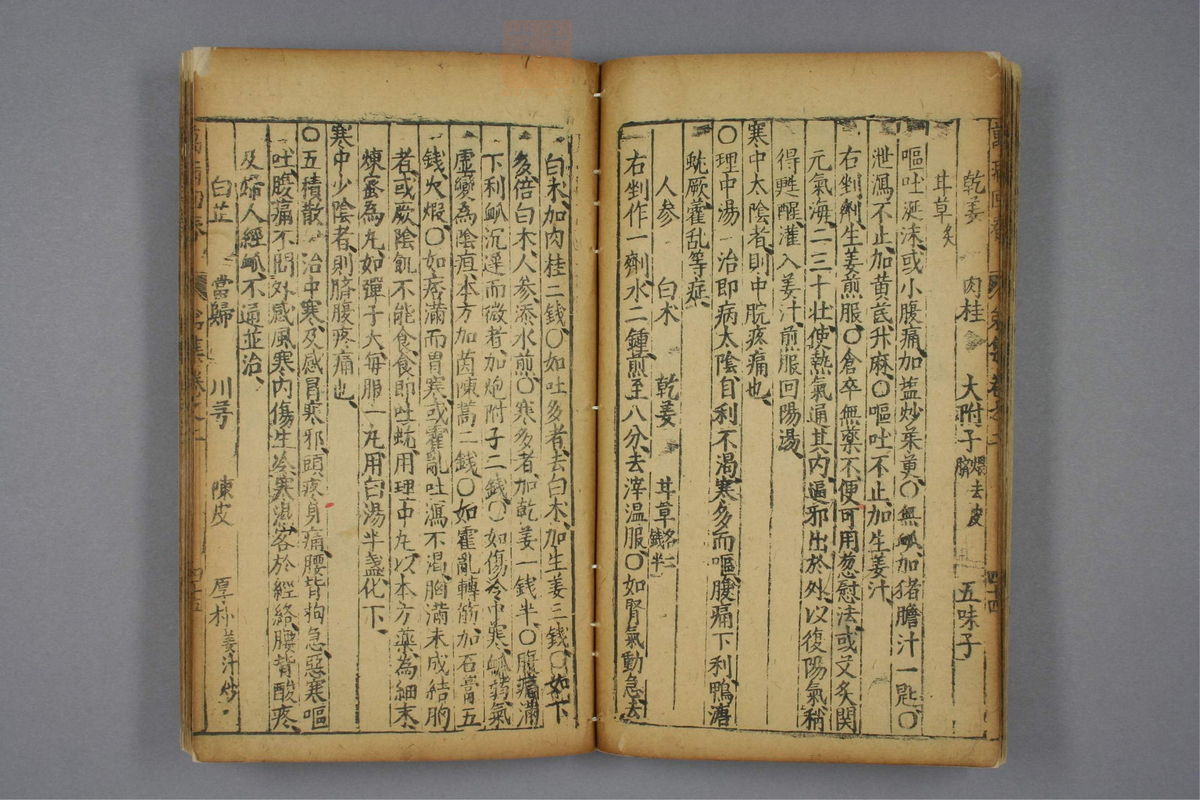 乾姜 肉桂 大附子煨去皮臍 五味子
甘草炙
嘔吐涎沫或小腹痛加盐炒茱萸〇無脉加猪膽汁一匙〇
泄瀉不止加黄芪升麻〇嘔吐不止加生姜汁
右剉劑生姜煎服〇倉卒無藥不便可用葱慰法或艾炙関
元氣海二三十壯使熱氣通其内逼邪出於外以復陽氣稍
得甦醒灌入姜汁煎服回陽湯
寒中太陰者則中脘疼痛也
〇理中湯 治即病太陰自利不渴寒多而嘔腹痛下利鴨溏
蚘厥藿乱等症
人参 白术 乾姜 甘草各二錢半
右剉作一劑水二鍾煎至八分去滓温服〇如腎氣動急去
白术加肉桂二錢〇如吐多者去白术加生姜三錢〇如下
多倍白术人参添水煎〇寒多者加乾姜一錢半〇腹痛滿
下利脉沉遲而微者加炮附子二錢〇如傷冷中寒脉弱氣
虚變為陰疸本方加茵陳蒿二錢〇如霍亂轉筋加石膏五
錢火煅〇如痞滿而胃寒或霍亂吐瀉不渴胸滿未成結胸
者或厥陰飢不能食食即吐蚘用理中丸以本方藥為細末
煉蜜為丸如彈子大每服一丸用白湯半盞化下
寒中少陰者則臍腹疼痛也
〇五積散 治中寒及感冒寒邪頭疼身痛腰背拘急惡寒嘔
吐腹痛不問外感風寒内傷生冷寒濕客於經絡腰背酸疼
及婦人經脉不通並治
白芷 當歸 川芎 陳皮 厚朴姜汁炒